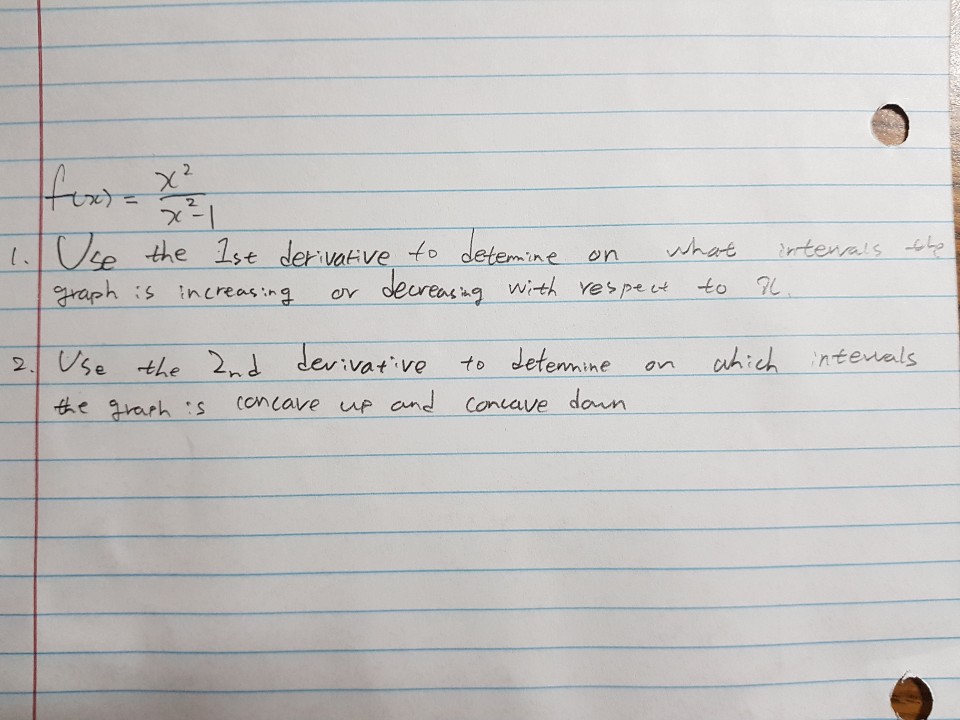 f(x) = x²/(x²-1)
1. Use the 1st derivative to detemine on what intervals the
graph is increasing or decreasing with respect to x.
2. Use the 2nd derivative to determine on which intervals
the graph is concave up and concave down